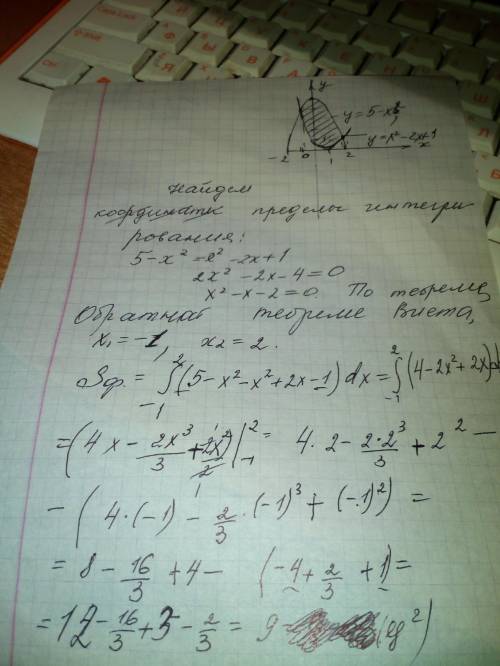 y
y = 5-x²
y=x²-2x+1
-2 0 1 2 x
Найдем
координаты пределы интегри
рования:
5-x²=x²-2x+1
2x²-2x-4=0
x²-x-2=0. По теореме,
Обратной теореме Виета,
x₁=-1, x₂=2.
Sф.= ∫₋₁² (5-x²-x²+2x-1)dx = ∫₋₁² (4-2x²+2x)d
=(4x - 2x³/3 + 2x²/2)|₋₁² = 4·2 - 2·2³/3 + 2² -
- (4·(-1) - 2/3·(-1)³ + (-1)²) =
= 8 - 16/3 + 4 - (-4 + 2/3 + 1) =
= 12 - 16/3 + 3 - 2/3 = 9 (ед²)